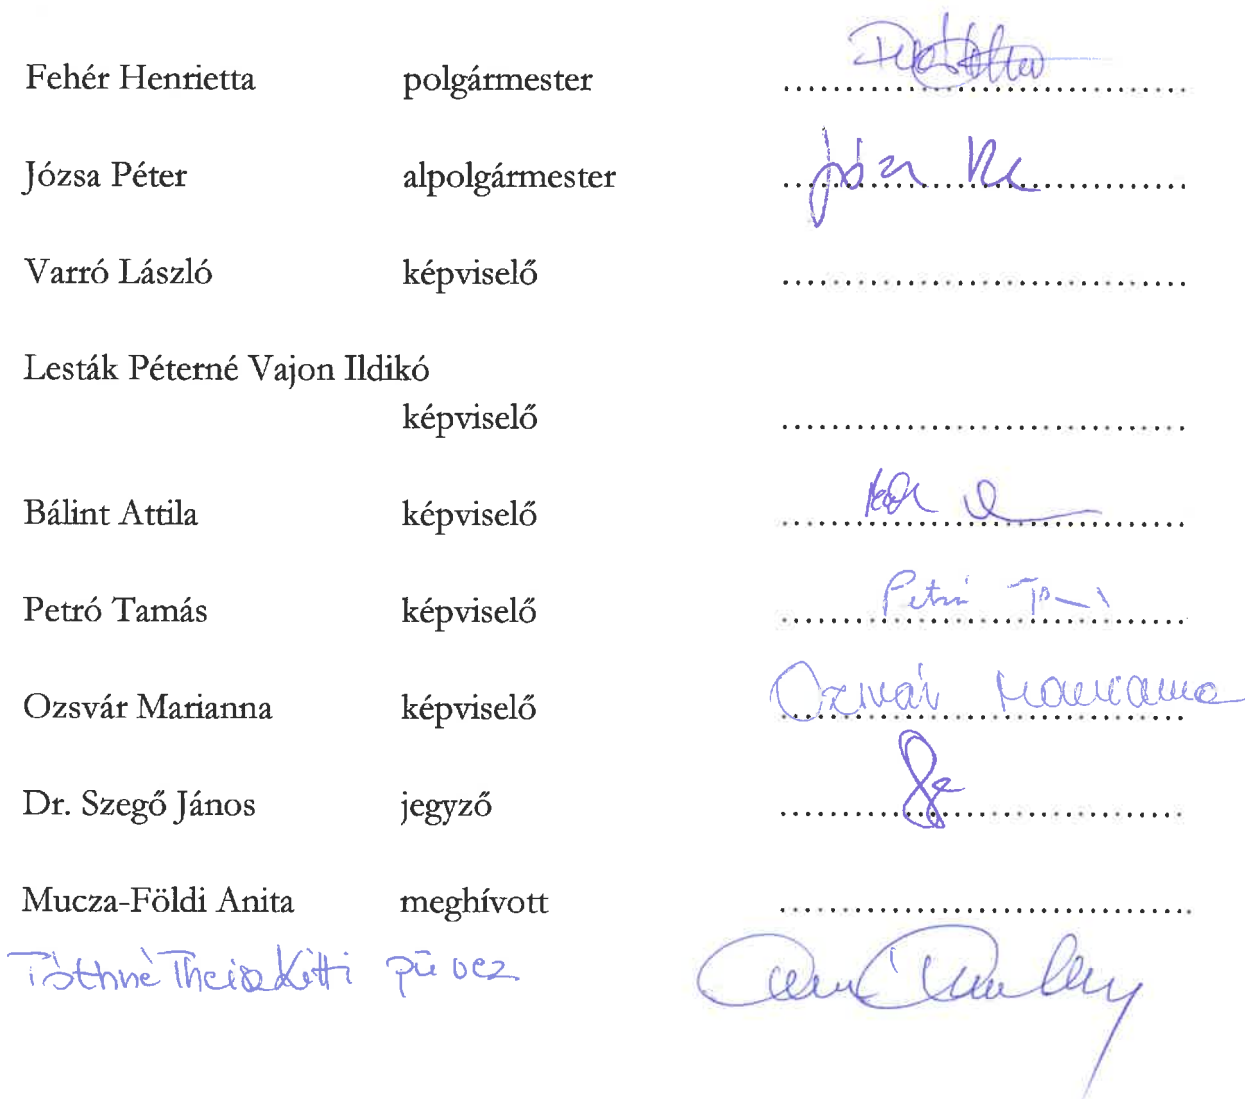 Fehér Henrietta polgármester ........................................
Józsa Péter alpolgármester ........................................
Varró László képviselő ........................................
Lesták Péterné Vajon Ildikó
képviselő ........................................
Bálint Attila képviselő ........................................
Petró Tamás képviselő ........................................
Ozsvár Marianna képviselő Ozsvár Marianna
Dr. Szegő János jegyző ........................................
Mucza-Földi Anita meghívott ........................................
Tóthné Theisz Kitti pü vez